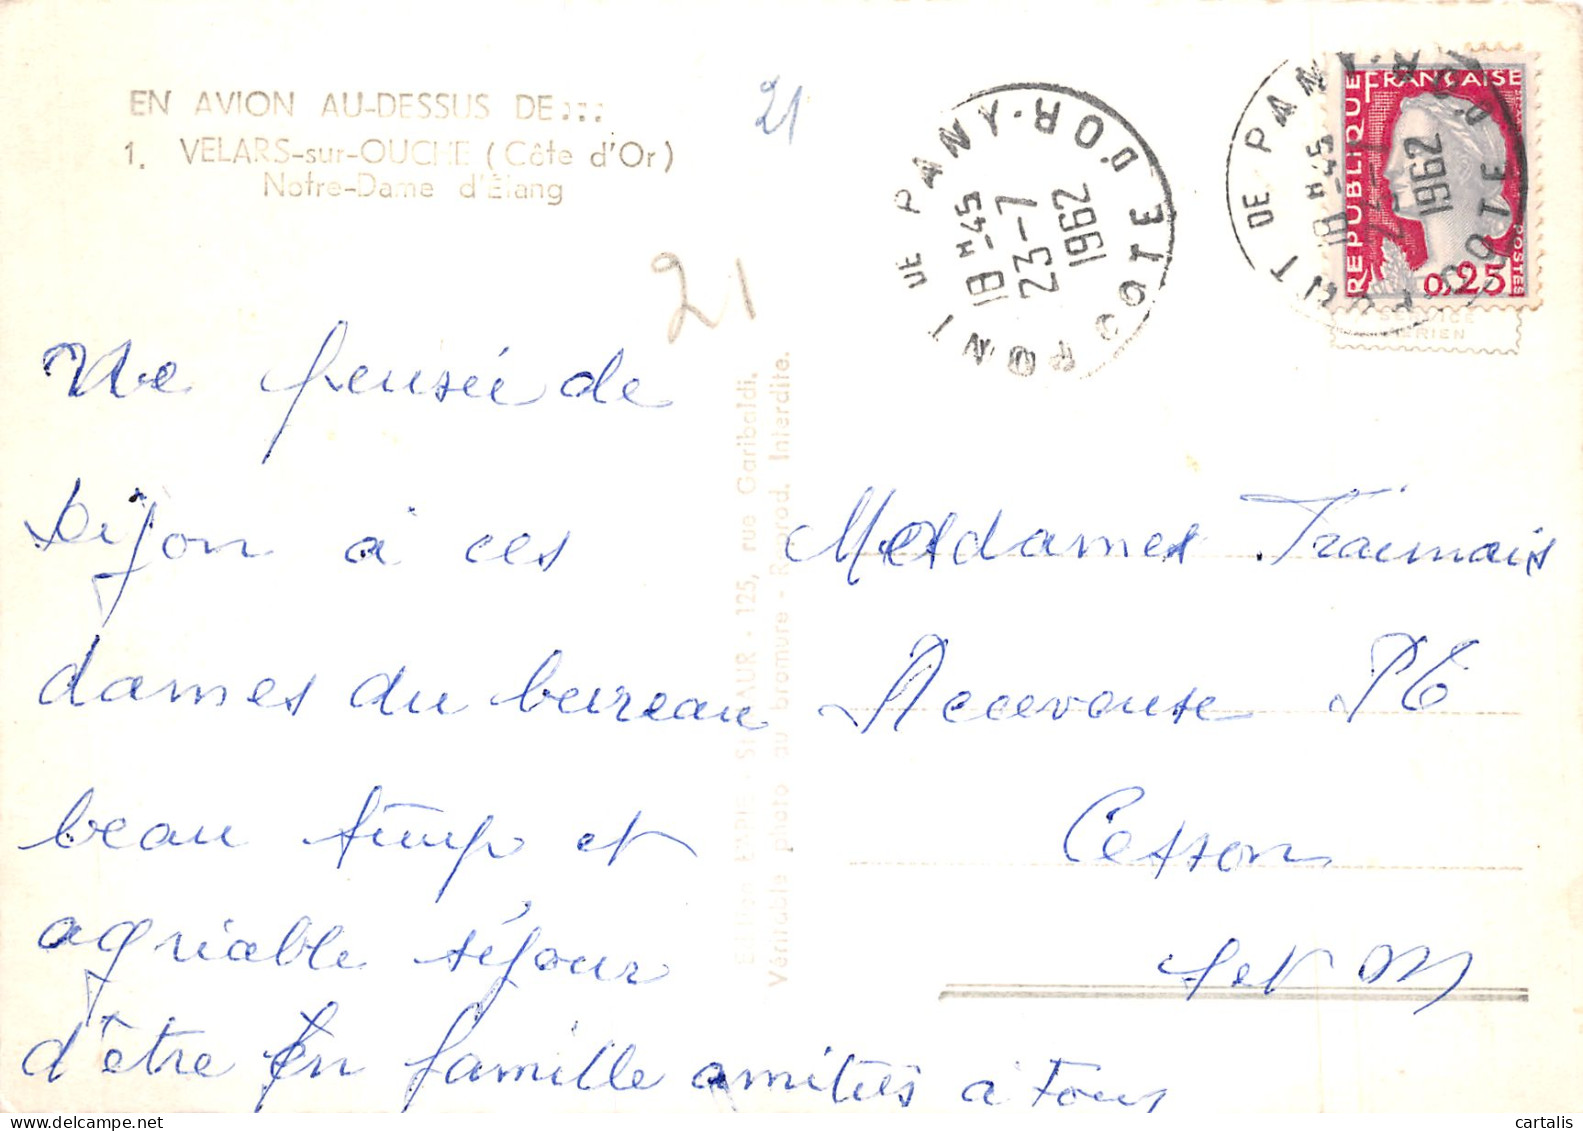 EN AVION AU-DESSUS DE...
1. VELARS-sur-OUCHE (Côte d'Or)
Notre-Dame d'Etang
21
21
PONT DE PANY-R. COTE D'OR
18 H 45
23-7
1962
PONT DE PANY-R. COTE D'OR
18 H 45
23-7
1962
RÉPUBLIQUE FRANÇAISE
POSTES
0,25
SERVICE
AÉRIEN
Une pensée de
Dijon à ces
dames du bureau
beau temp et
agriable séjour
d'être en famille amitiés à Tous
Edition LAPIE - St-MAUR - 125, rue Garibaldi.
Véritable photo au bromure - Reprod. Interdite.
Mesdames
Receveuse PT
Cesson
S et M
cartalis